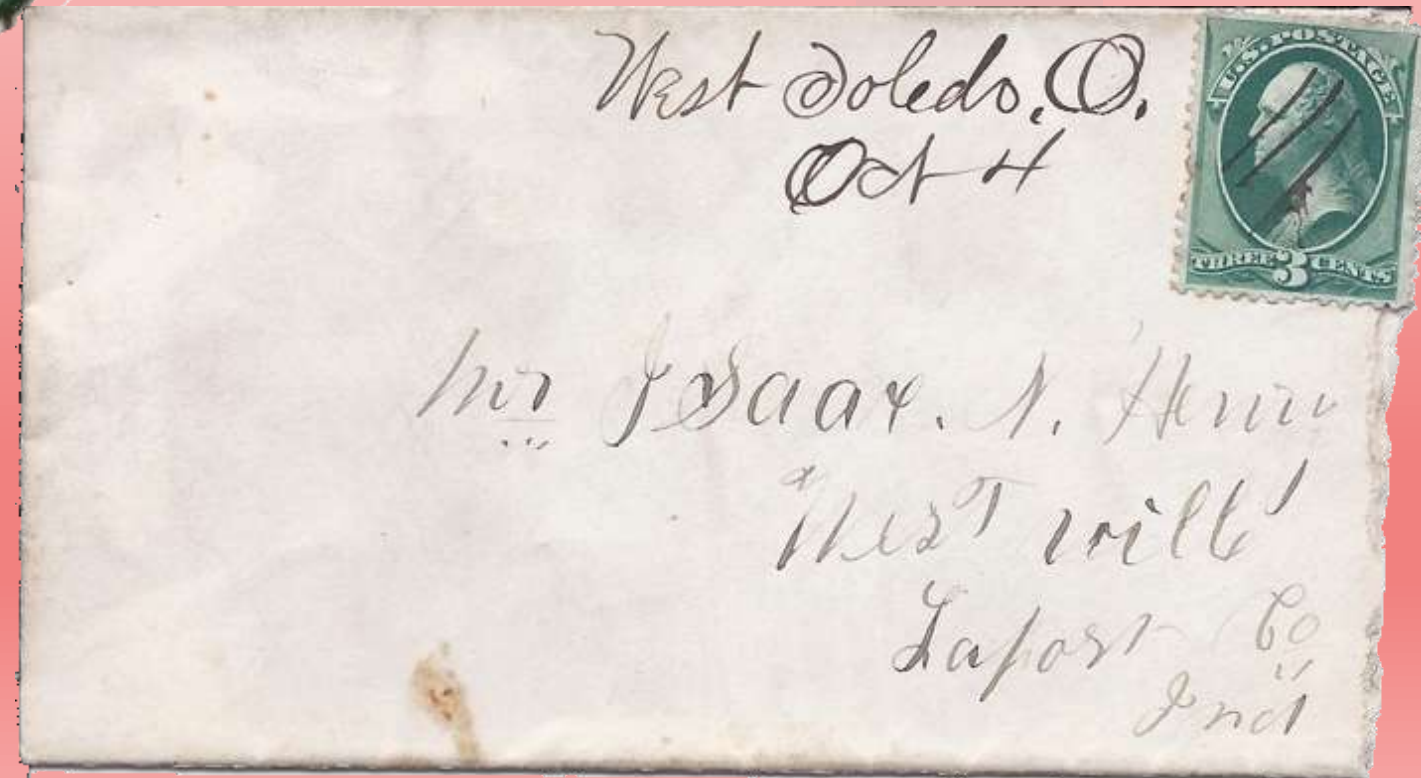 West Toledo, O.
Oct 4
U.S. POSTAGE
THREE 3 CENTS
Mr Isaac. N. Henry
West vill
Laport Co
Ind